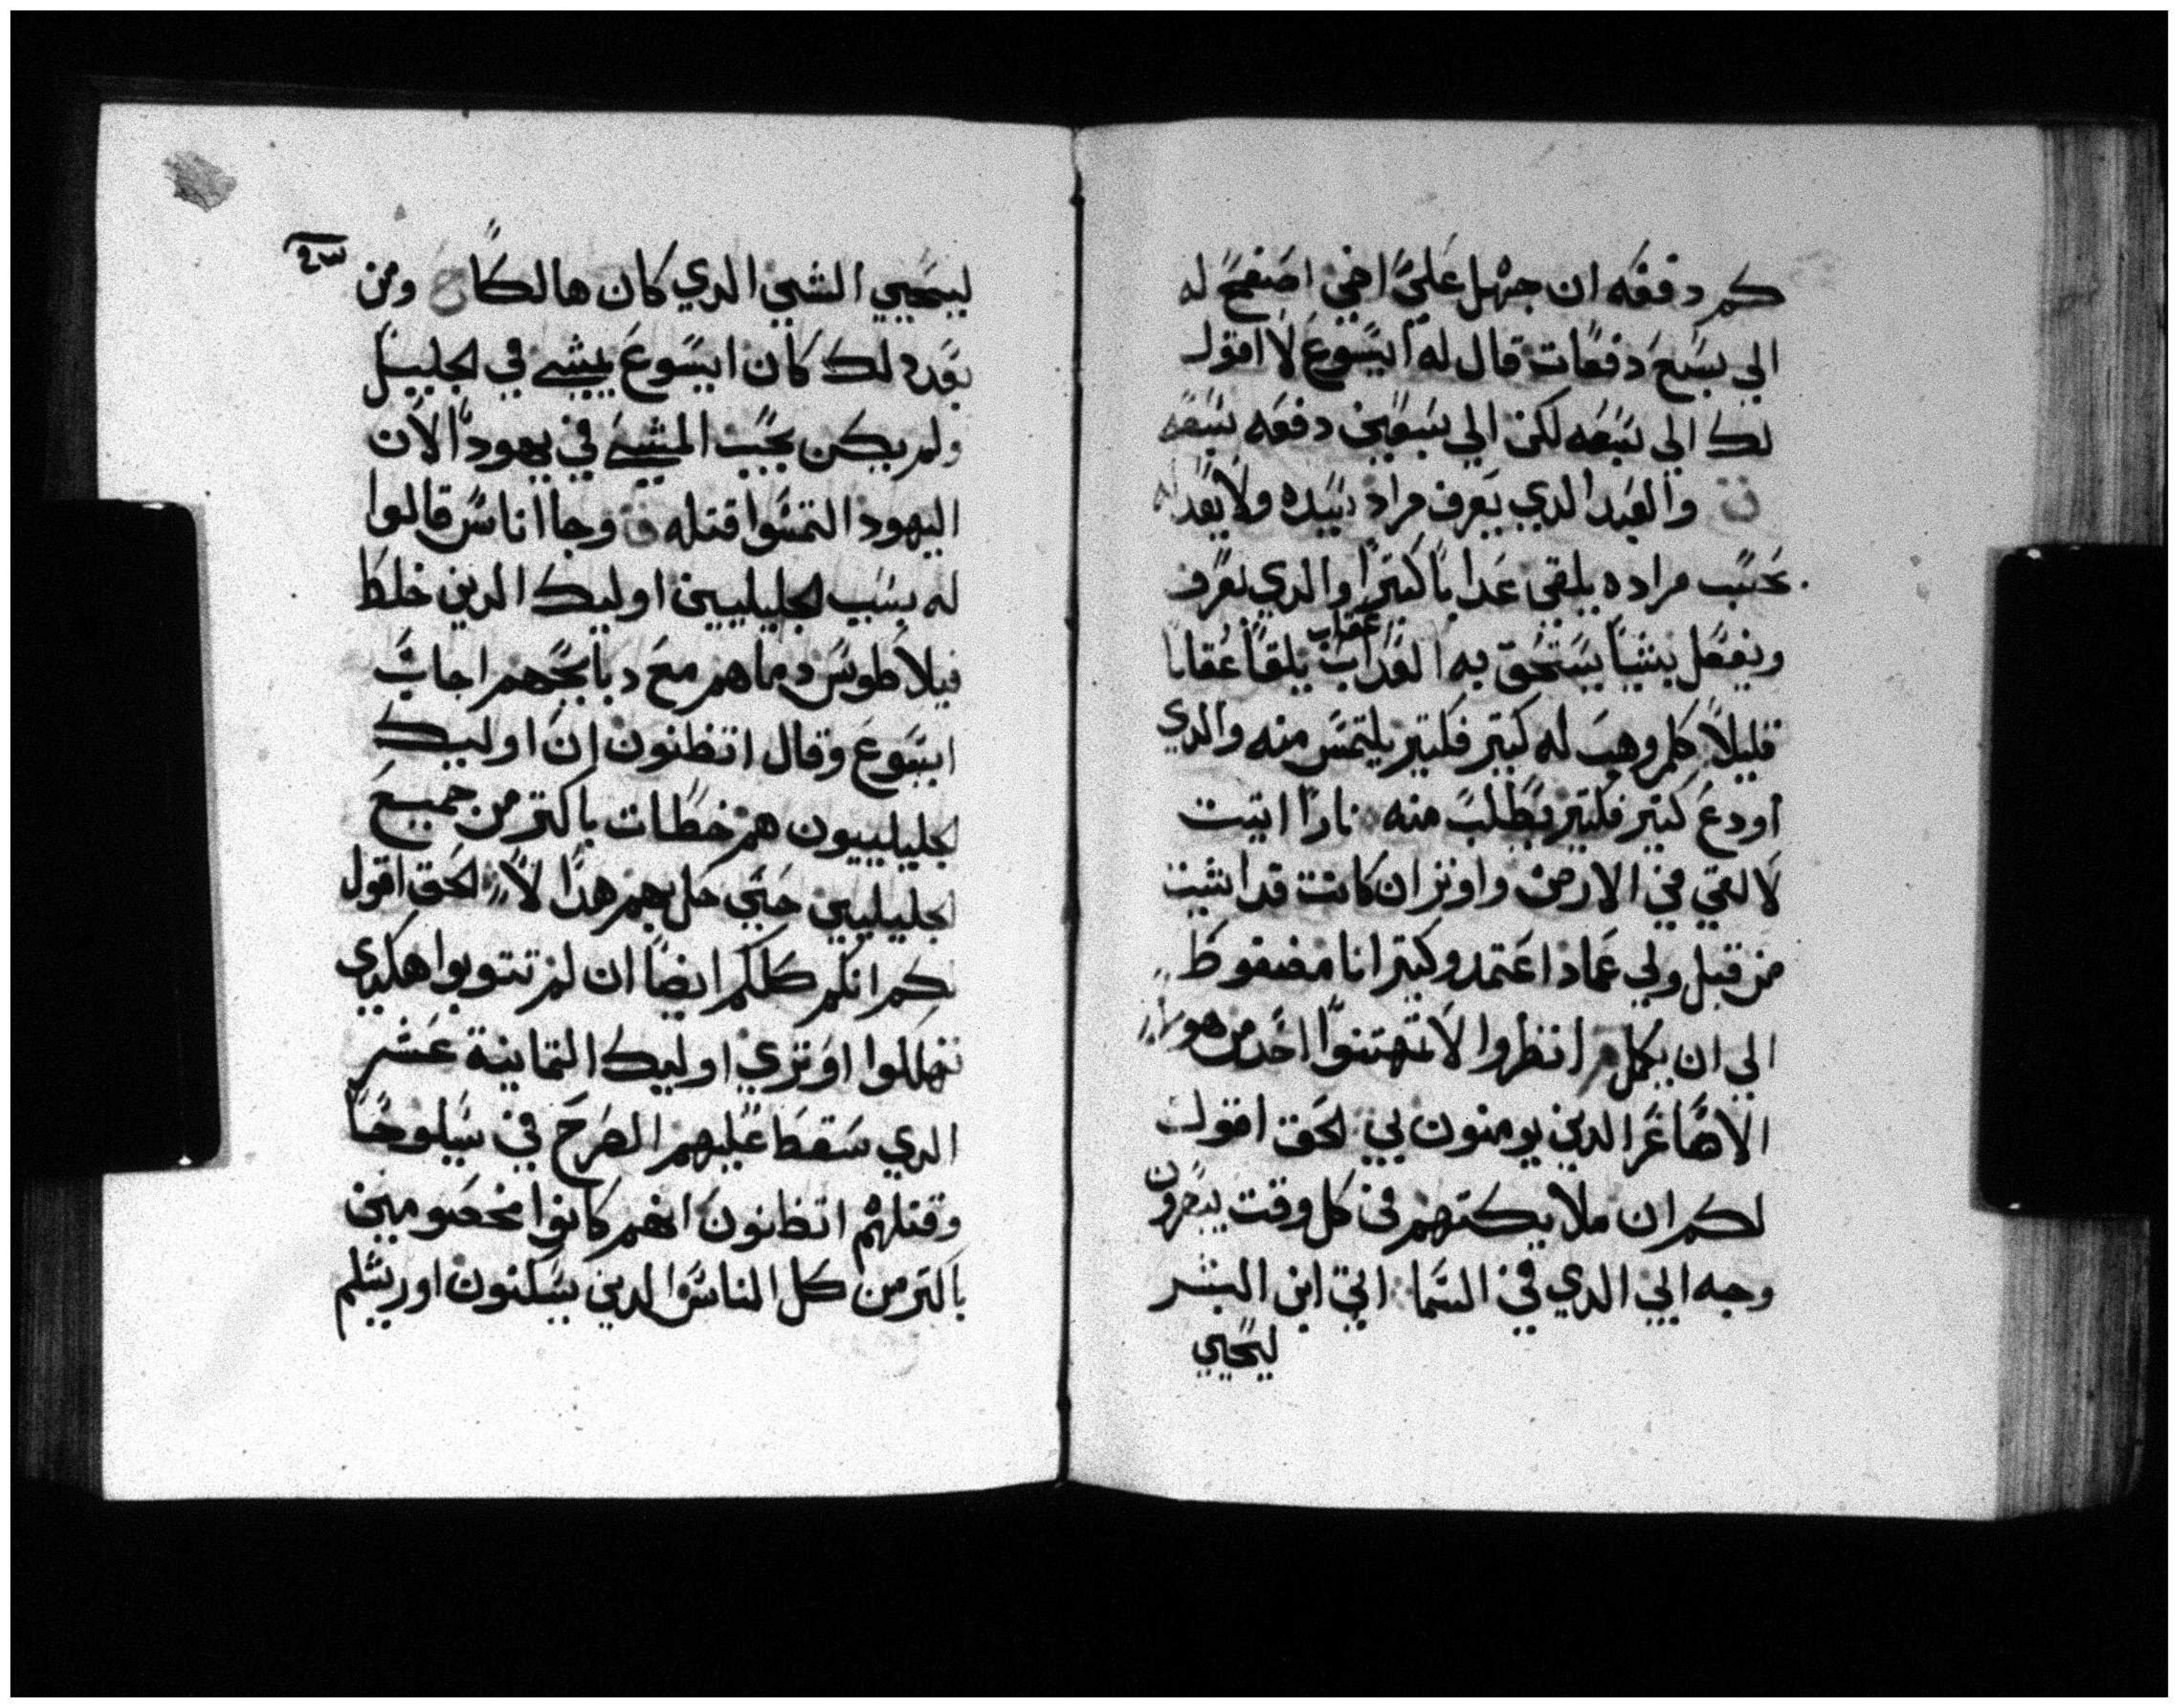 كم دفعه ان جهل علي اخي اصفح له
الي سبع دفعات قال له ايسوع لا اقول
لك الي سبعه لكن الي سبعين دفعه سبعه
ن والعبد الدي يعرف مراد سيده ولا يعد له
بحسب مراده يلقي عدابا كتيرا والدي يعرف
ويفعل شيا يستحق به العداب يلقا عقابا
عقاب
قليلا كلمن وهب له كتير فكتير يلتمس منه والدي
اودع كتير فكتير يطلب منه نارا اتيت
لالقي في الارض واوتر ان كانت قد انشبت
من قبل ولي عماد اعتمد وكتير انا مضغوط
الي ان يكمل انظروا لا تمتهنوا احد من هولا
الاصاغر الدين يومنون بي الحق اقول
لكم ان ملايكتهم في كل وقت يبصرون
وجه ابي الدي في السما اتي ابن البشر
ليحيي
ليحيي الشي الدي كان هالكا ح ومن
بعد دلك كان ايسوع يمشي في الجليل
ولم يكن يحب المشي في يهودا لان
اليهود التمسوا قتله ق وجا اناس قالوا
له بسبب الجليليين اوليك الدين خلط
فيلاطوس دماهم مع دبايحهم اجاب
ايسوع وقال اتظنون ان اوليك
الجليلييون هم خطات باكتر من جميع
الجليليين حتي حل بهم هدا لا الحق اقول
لكم انكم كلكم ايضا ان لم تتوبوا هكدي
تهللوا او تري اوليك التمانية عشر
الدي سقط عليهم الصرح في سيلوحا
وقتلهم اتظنون انهم كانوا مخصومين
باكتر من كل الناس الدين يسكنون اورشلم